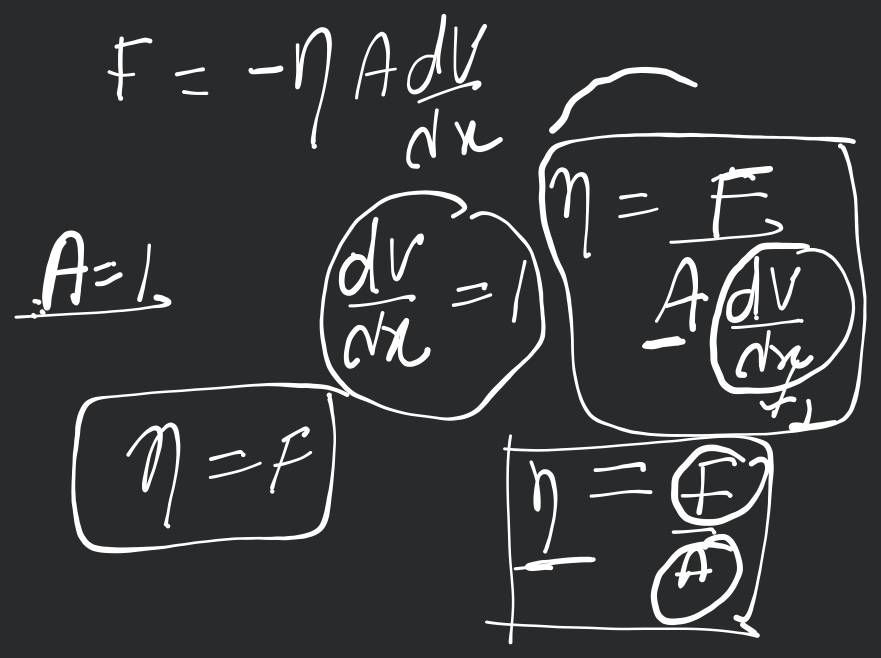 F = -η A dv/dx
A = 1
dv/dx = 1
η = F / A dv/dx
η = F
η = F/A